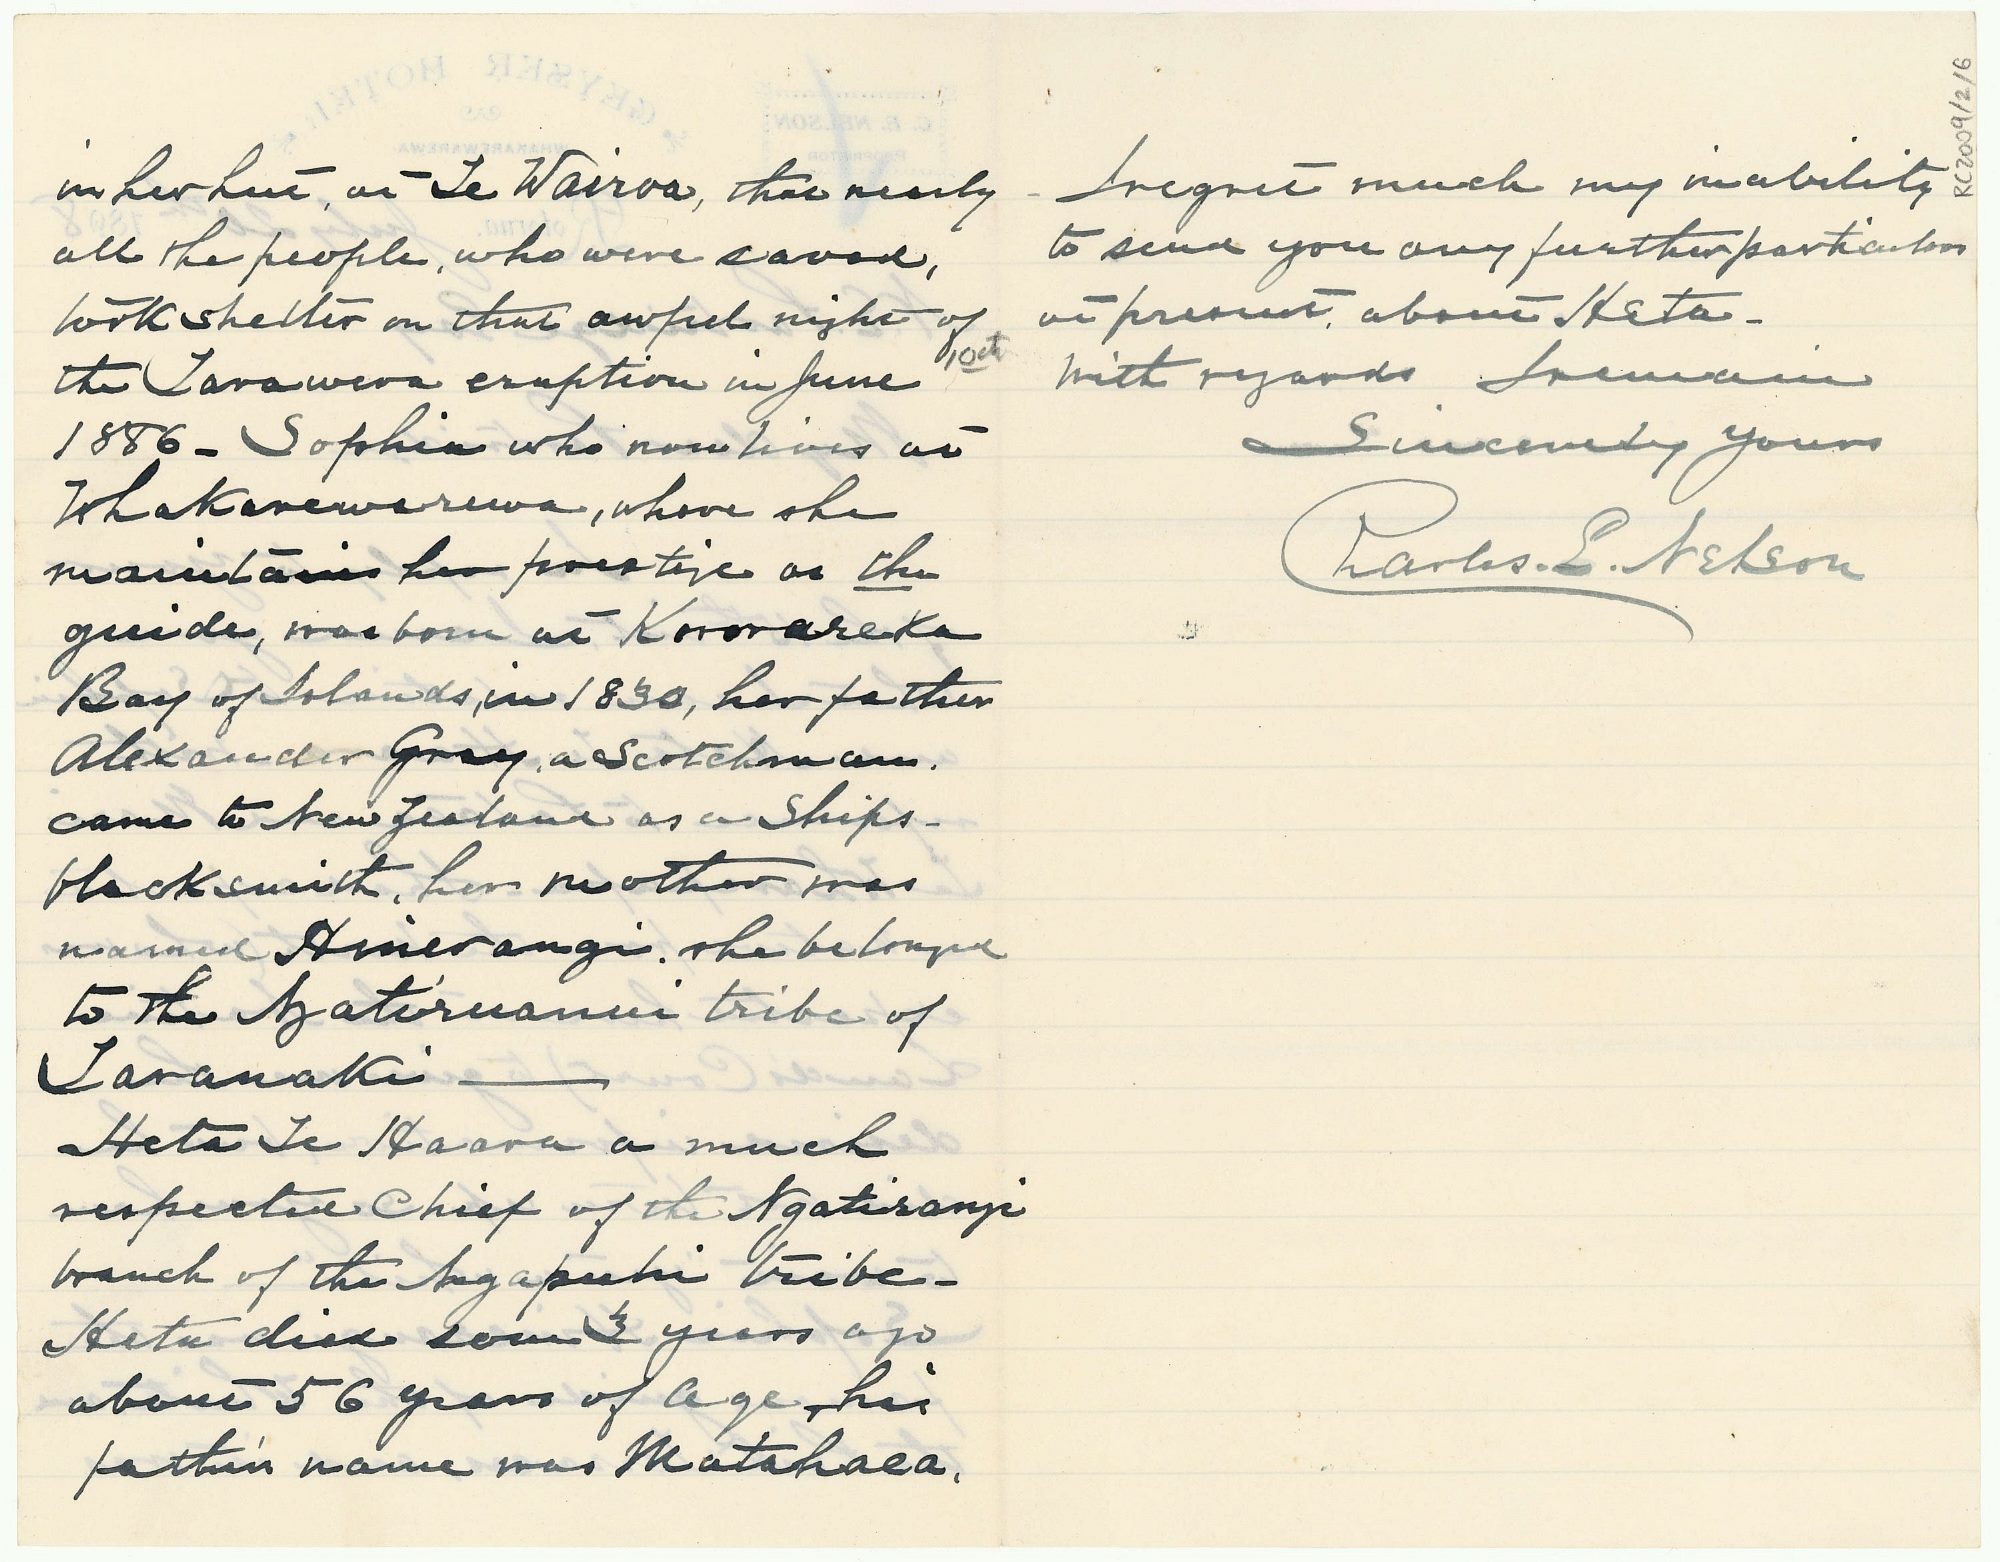 in her hut, at Te Wairoa, that nearly
all the people, who were saved,
took shelter on that awful night of
the Tarawera eruption in June 10th
1886 - Sophia who now lives at
Whakarewarewa, where she
maintains her prestige as the
guide, was born at Kororareka
Bay of Islands, in 1830, her father
Alexander Gray, a Scotchman.
came to New Zealand as a Ships-
blacksmith, her mother was
named Hinerangi. she belonged
to the Ngatiruanui tribe of
Taranaki —
Heta Te Haara a much
respected Chief of the Ngatirangi
branch of the Ngapuhi tribe -
Heta died some 3 years ago
about 56 years of age, his
father's name was Matahaea.
I regret much my inability
to send you any further particulars
at present, about Heta -
With regards I remain
Sincerely Yours
Charles. E. Nelson
RC2009/2/6
GEYSER HOTEL
WHAKAREWAREWA
C. E. NELSON
PROPRIETOR
Rotorua. 1898